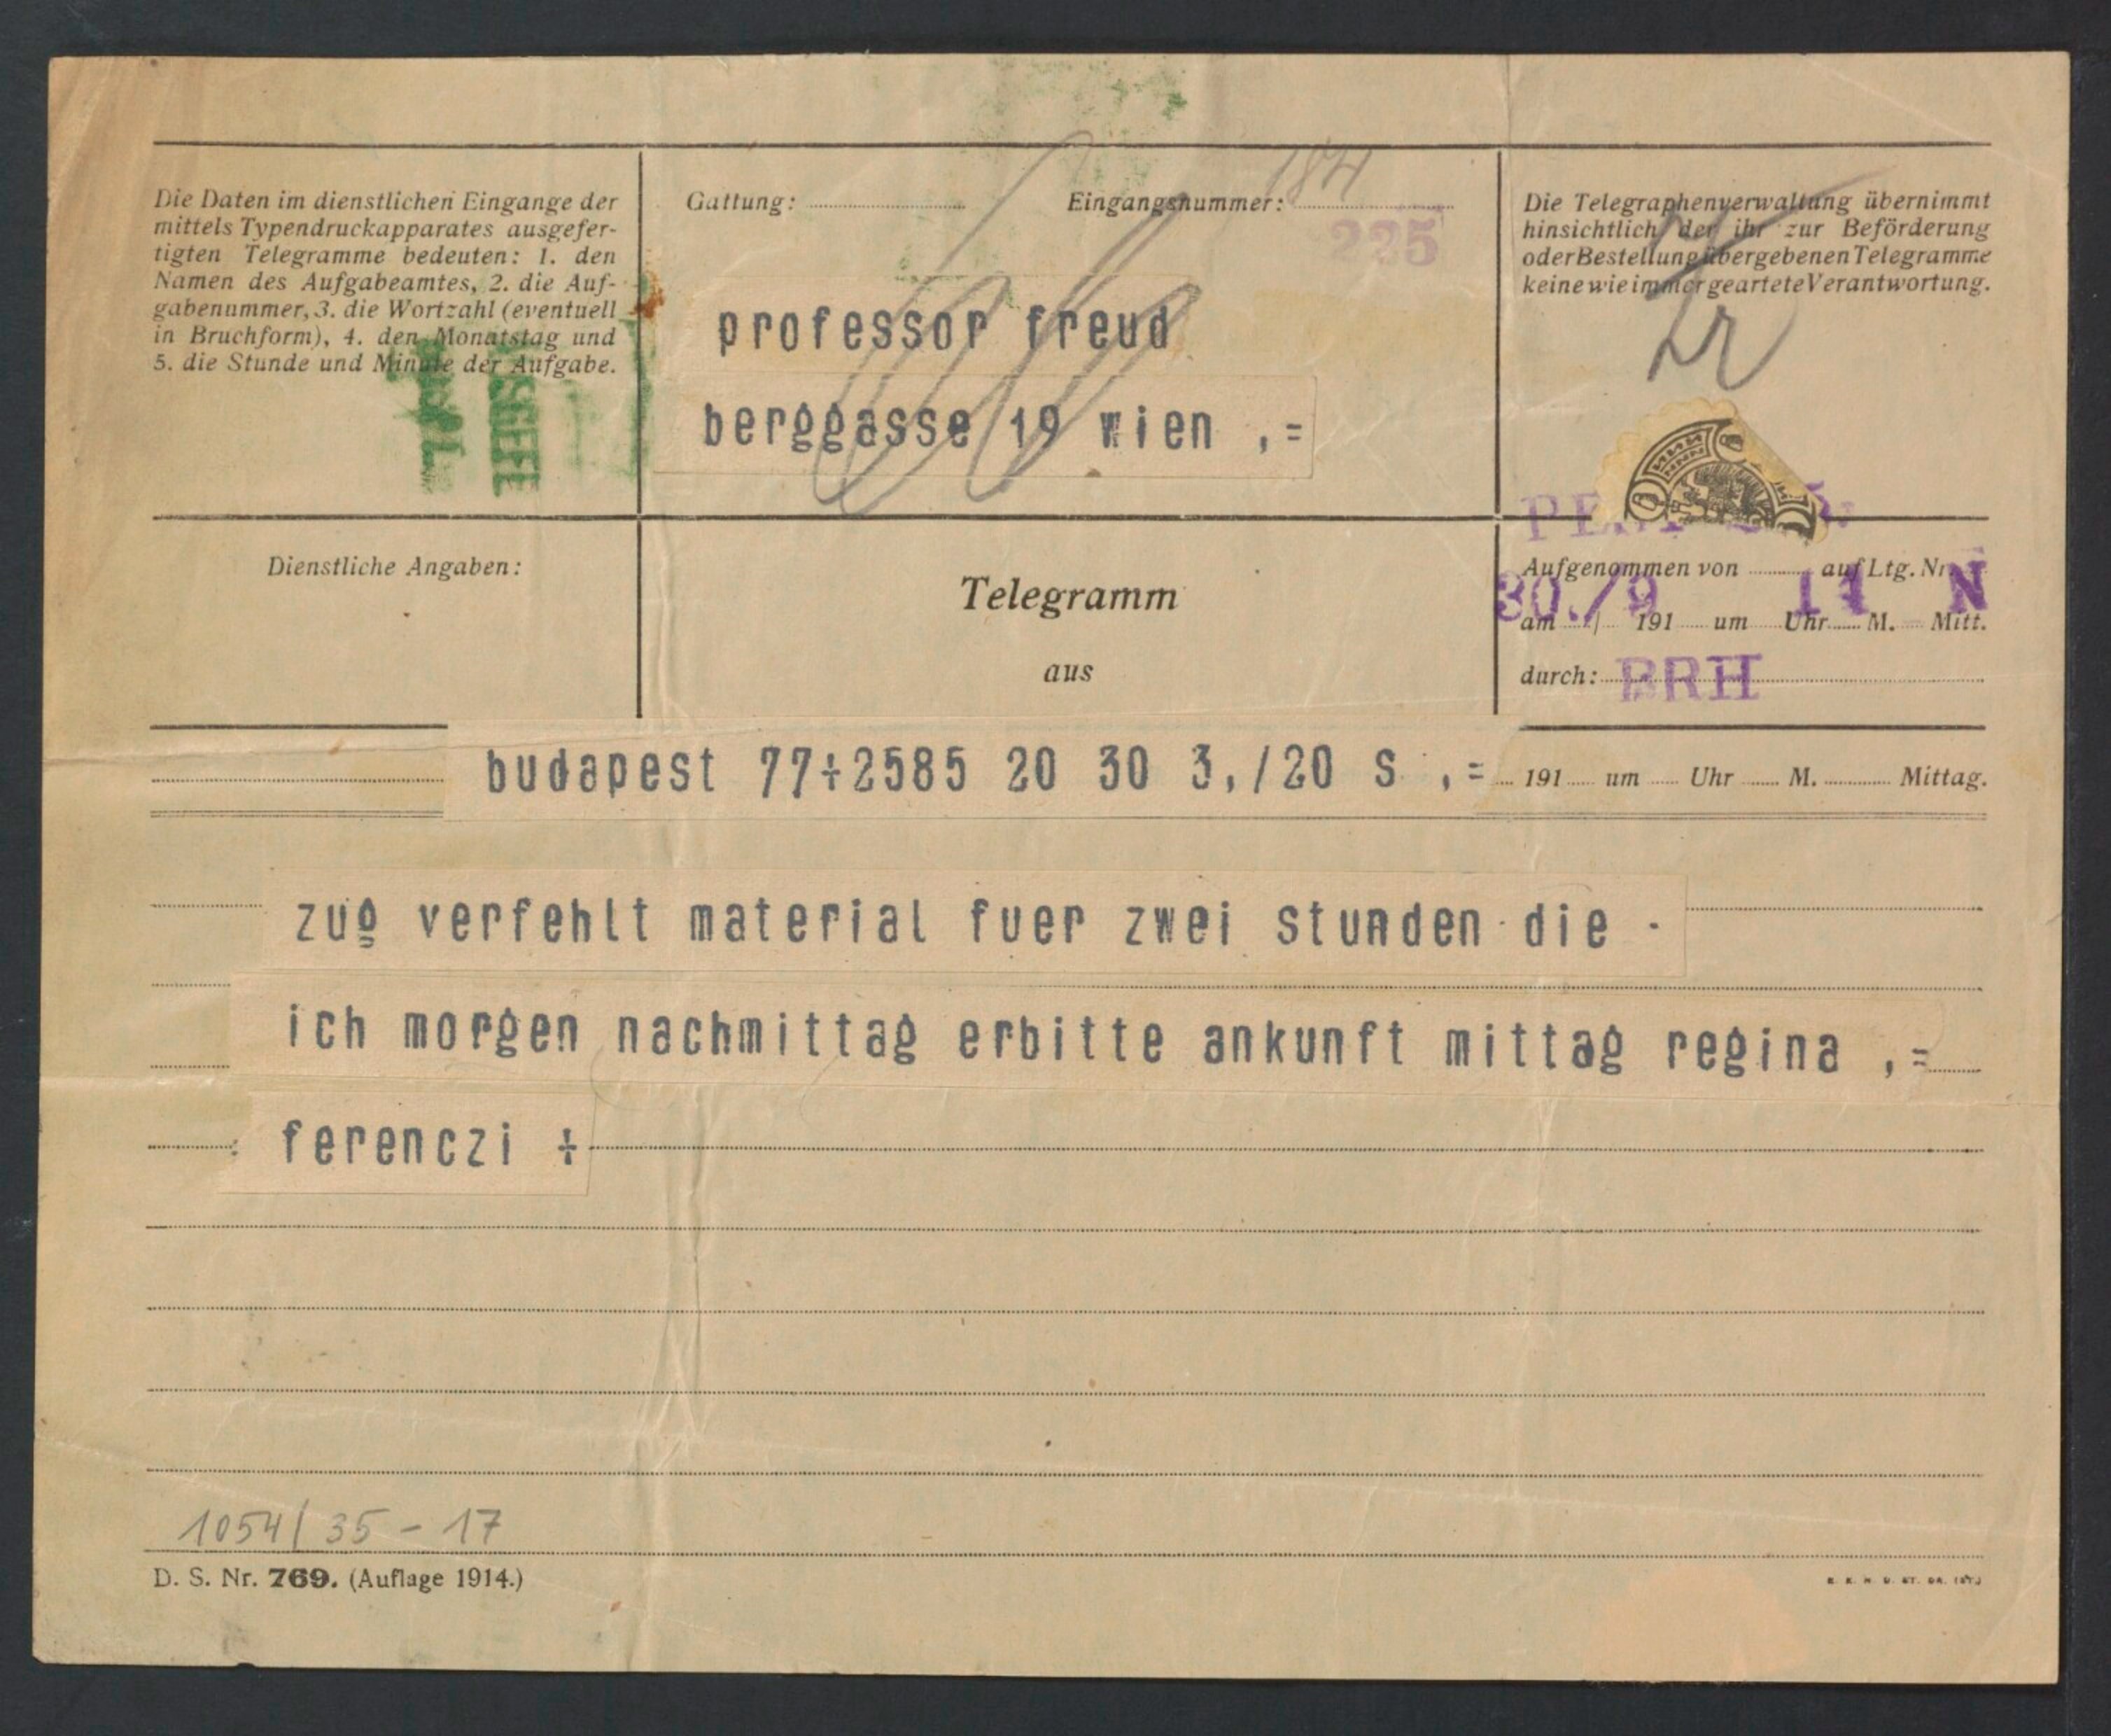 Die Daten im dienstlichen Eingange der
mittels Typendruckapparates ausgefer-
tigten Telegramme bedeuten: 1. den
Namen des Aufgabeamtes, 2. die Auf-
gabenummer, 3. die Wortzahl (eventuell
in Bruchform), 4. den Monatstag und
5. die Stunde und Minute der Aufgabe.
Gattung:
Eingangsnummer:
225
professor freud
berggasse 19 wien ,=
Die Telegraphenverwaltung übernimmt
hinsichtlich der ihr zur Beförderung
oder Bestellung übergebenen Telegramme
keine wie immer geartete Verantwortung.
Dienstliche Angaben:
Telegramm
aus
Aufgenommen von auf Ltg. Nr.
30./9 11 N
am / 191 um Uhr M. Mitt.
durch: BRH
budapest 77÷2585 20 30 3,/20 s ,= 191 um Uhr M. Mittag.
zug verfehlt material fuer zwei stunden die -
ich morgen nachmittag erbitte ankunft mittag regina ,=
ferenczi ÷
1054/35-17
D. S. Nr. 769. (Auflage 1914.)